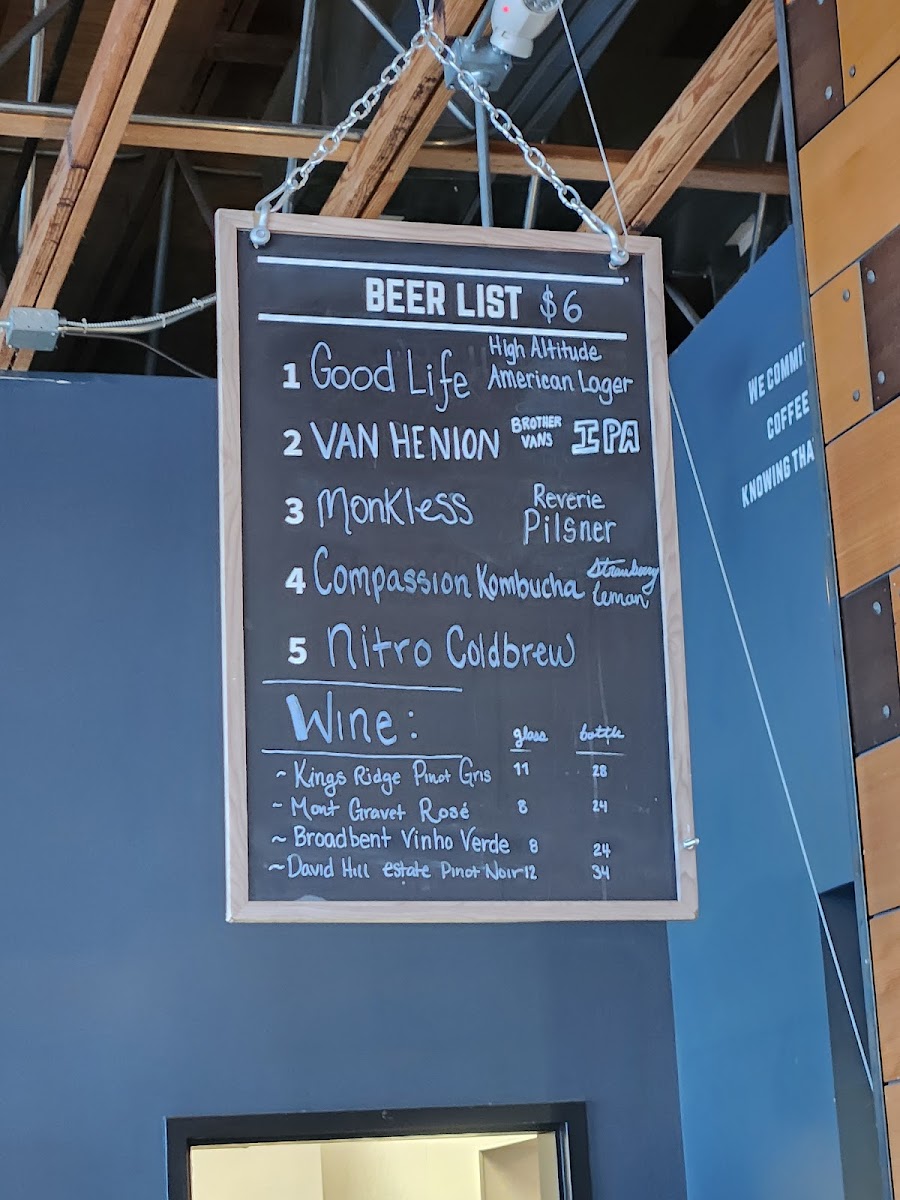 BEER LIST $6
1 Good Life High Altitude American Lager
2 VAN HENION BROTHER VANS IPA
3 Monkless Reverie Pilsner
4 Compassion Kombucha Strawberry Leman
5 Nitro Coldbrew
Wine: glass bottle
~ Kings Ridge Pinot Gris 11 28
~ Mont Gravet Rosé 8 24
~ Broadbent Vinho Verde 8 24
~ David Hill estate Pinot Noir 12 34
WE COMMI
COFFEE
KNOWING THA